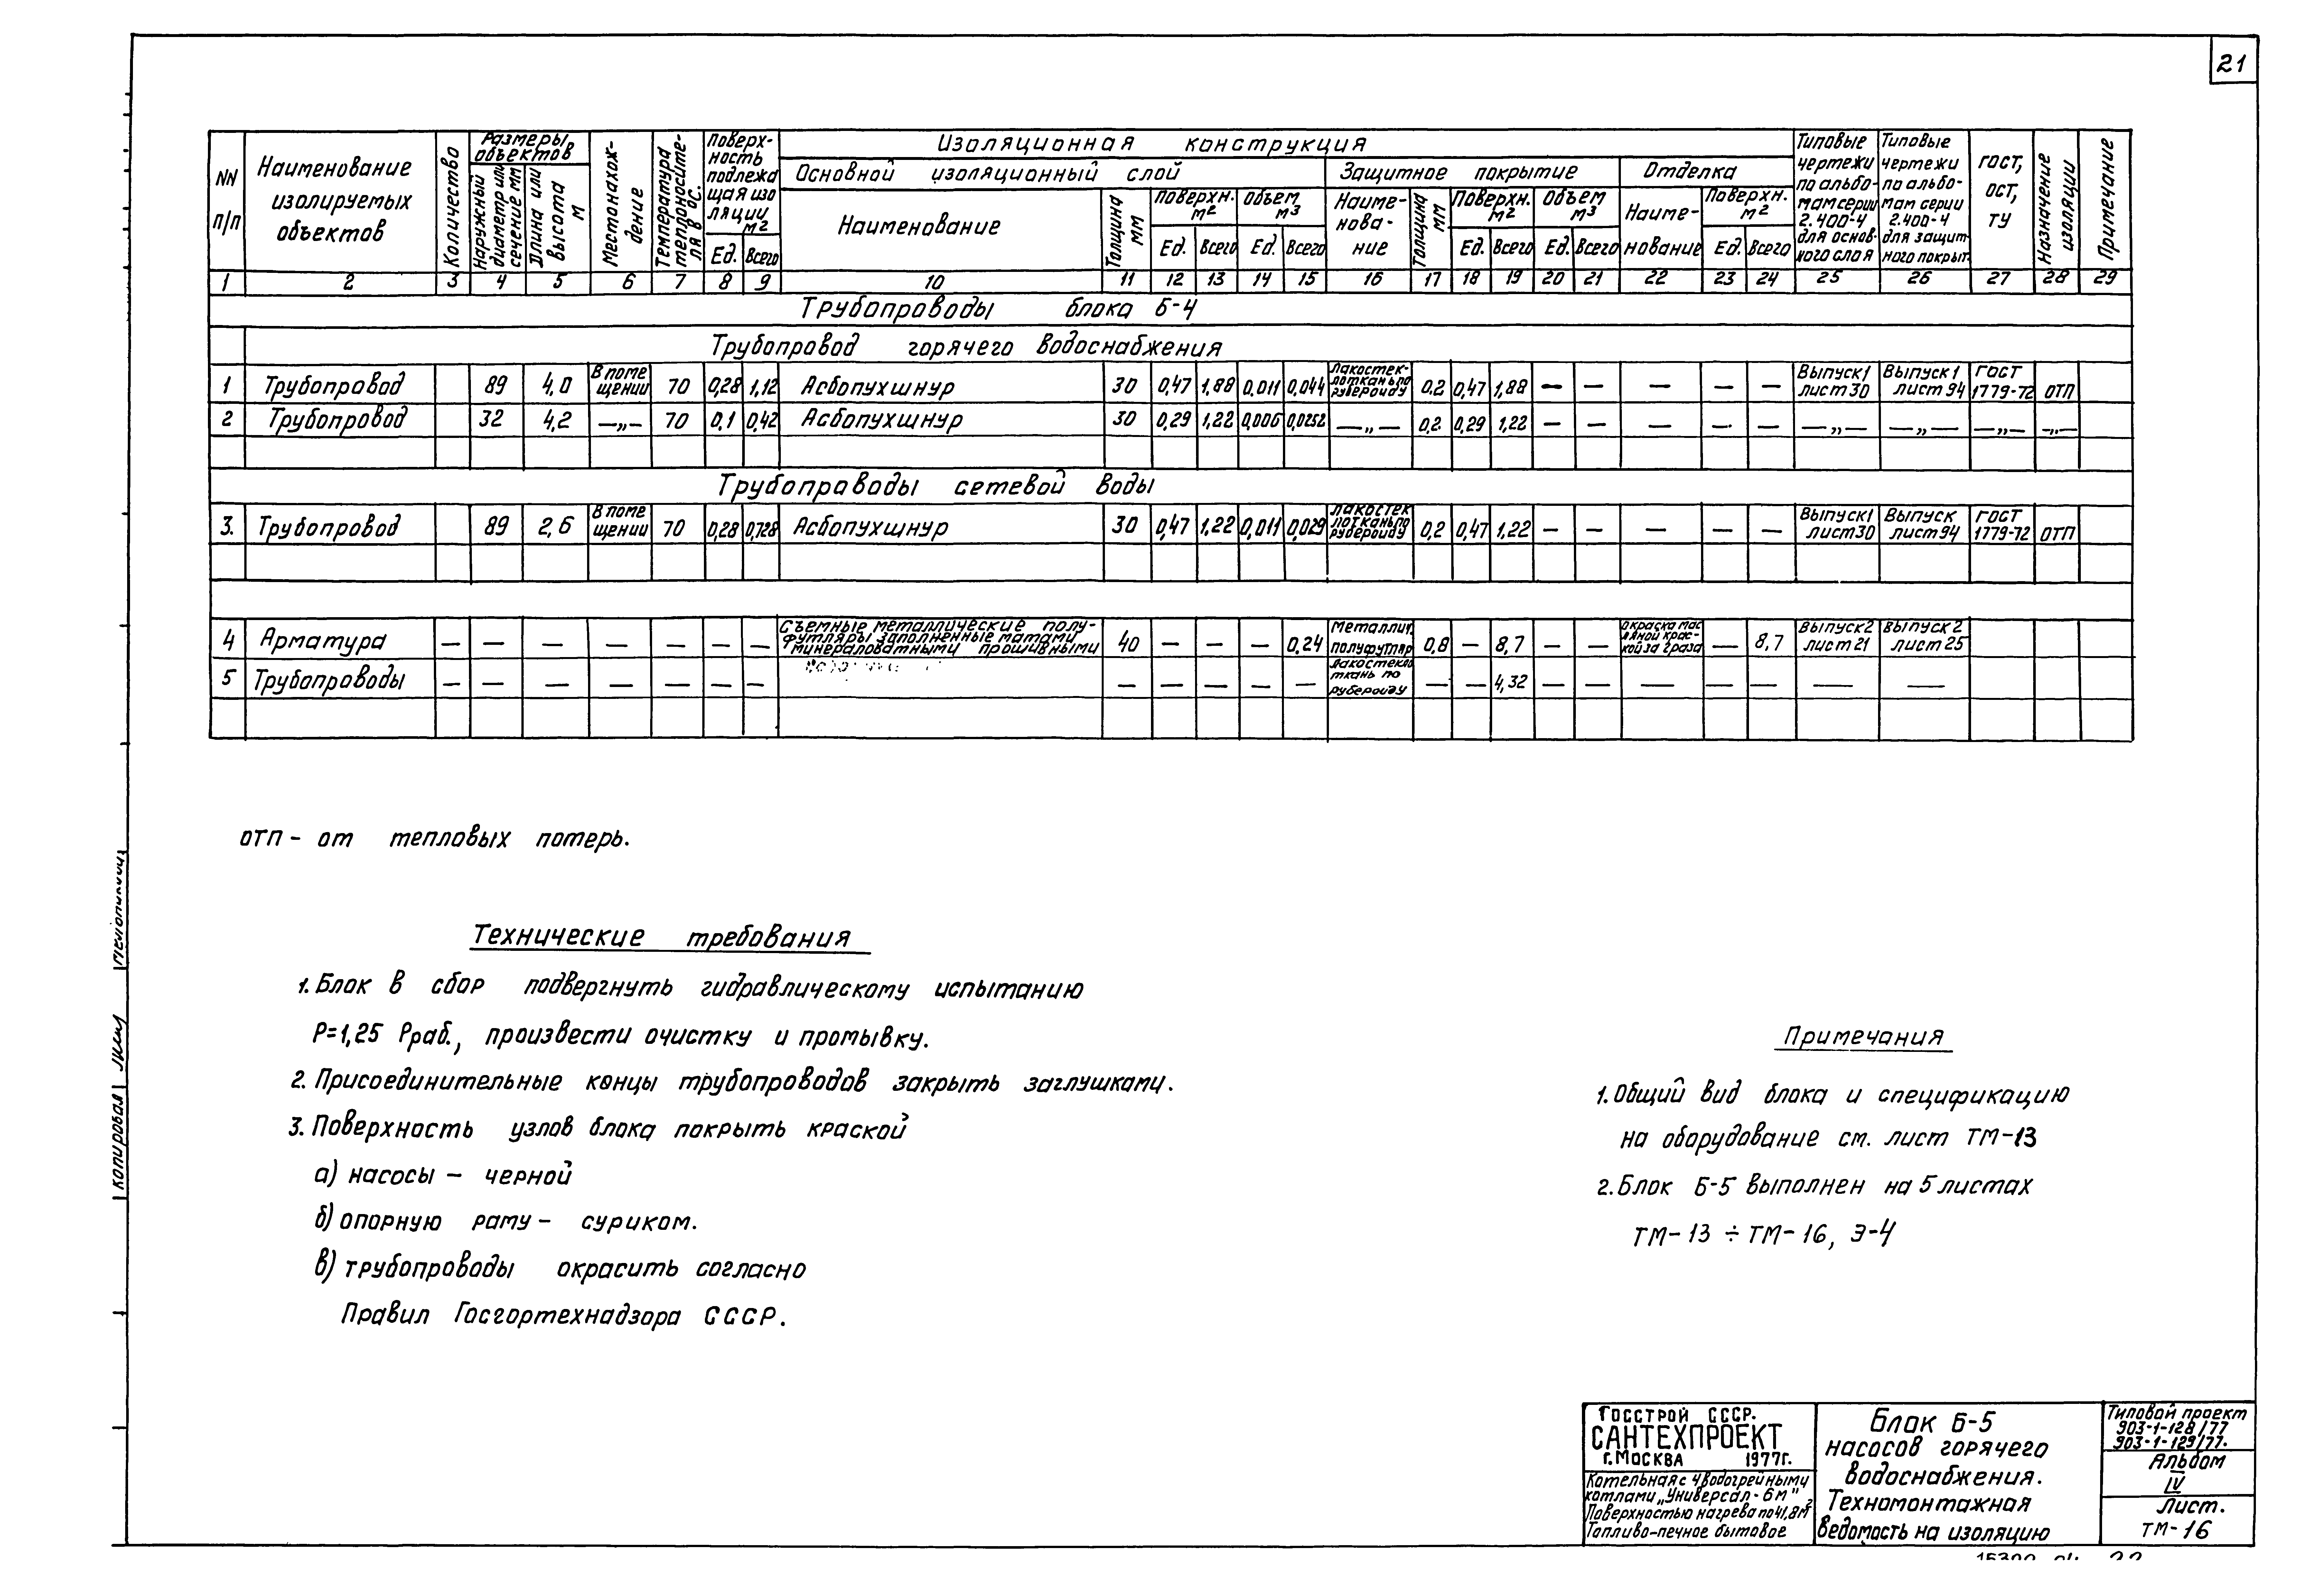 21
NN п/п
Наименование изолируемых объектов
Количество
Размеры объектов
Наружный диаметр или сечение мм
Длина или высота м
Местонахождение
Температура теплоносителя в °С.
Поверхность подлежащая изоляции м2
Ед. Всего
Изоляционная конструкция
Основной изоляционный слой
Наименование
Толщина мм
Поверхн. м2
Ед. Всего
Объем м3
Ед. Всего
Защитное покрытие
Наименование
Толщина мм
Поверхн. м2
Ед. Всего
Объем м3
Ед. Всего
Отделка
Наименование
Поверхн. м2
Ед. Всего
Типовые чертежи по альбомам серии 2.400-4 для основного слоя
Типовые чертежи по альбомам серии 2.400-4 для защитного покрыт.
ГОСТ, ОСТ, ТУ
Назначение изоляции
Примечание
1 2 3 4 5 6 7 8 9 10 11 12 13 14 15 16 17 18 19 20 21 22 23 24 25 26 27 28 29
Трубопроводы блока Б-4
Трубопровод горячего водоснабжения
1 Трубопровод 89 4,0 В помещении 70 0,28 1,12 Асбопухшнур 30 0,47 1,88 0,011 0,044 Лакостеклоткань по рубероиду 0,2 0,47 1,88 — — — — — Выпуск 1 лист 30 Выпуск 1 лист 94 ГОСТ 1779-72 ОТП
2 Трубопровод 32 4,2 —„— 70 0,1 0,42 Асбопухшнур 30 0,29 1,22 0,006 0,0252 —„— 0,2 0,29 1,22 — — — — — —„— —„— —„— —„—
Трубопроводы сетевой воды
3. Трубопровод 89 2,6 В помещении 70 0,28 0,728 Асбопухшнур 30 0,47 1,22 0,011 0,029 Лакостеклоткань по рубероиду 0,2 0,47 1,22 — — — — — Выпуск 1 лист 30 Выпуск лист 94 ГОСТ 1779-72 ОТП
4 Арматура — — — — — — — Съемные металлические полуфутляры заполненные матами минераловатными прошивными 40 — — — 0,24 Металлич. полуфутляр 0,8 — 8,7 — — Окраска масляной краской за 2 раза — 8,7 Выпуск 2 лист 21 Выпуск 2 лист 25
5 Трубопроводы — — — — — — — — — — — — Лакостеклоткань по рубероиду — — 4,32 — — — — — — —
ОТП - от тепловых потерь.
Технические требования
1. Блок в сбор подвергнуть гидравлическому испытанию
Р=1,25 Рраб., произвести очистку и промывку.
2. Присоединительные концы трубопроводов закрыть заглушками.
3. Поверхность узлов блока покрыть краской
а) насосы - черной
б) опорную раму - суриком.
в) трубопроводы окрасить согласно
Правил Госгортехнадзора СССР.
Примечания
1. Общий вид блока и спецификацию
на оборудование см. лист ТМ-13
2. Блок Б-5 выполнен на 5 листах
ТМ-13 ÷ ТМ-16, Э-4
Копировал
Госстрой СССР.
САНТЕХПРОЕКТ
г. Москва 1977г.
Котельная с 4 водогрейными
котлами „Универсал-6м"
Поверхностью нагрева по 41,8м2
Топливо-печное бытовое
Блок Б-5
насосов горячего
водоснабжения.
Техномонтажная
ведомость на изоляцию
Типовой проект
903-1-128/77
903-1-129/77.
Альбом
IV
Лист.
ТМ-16